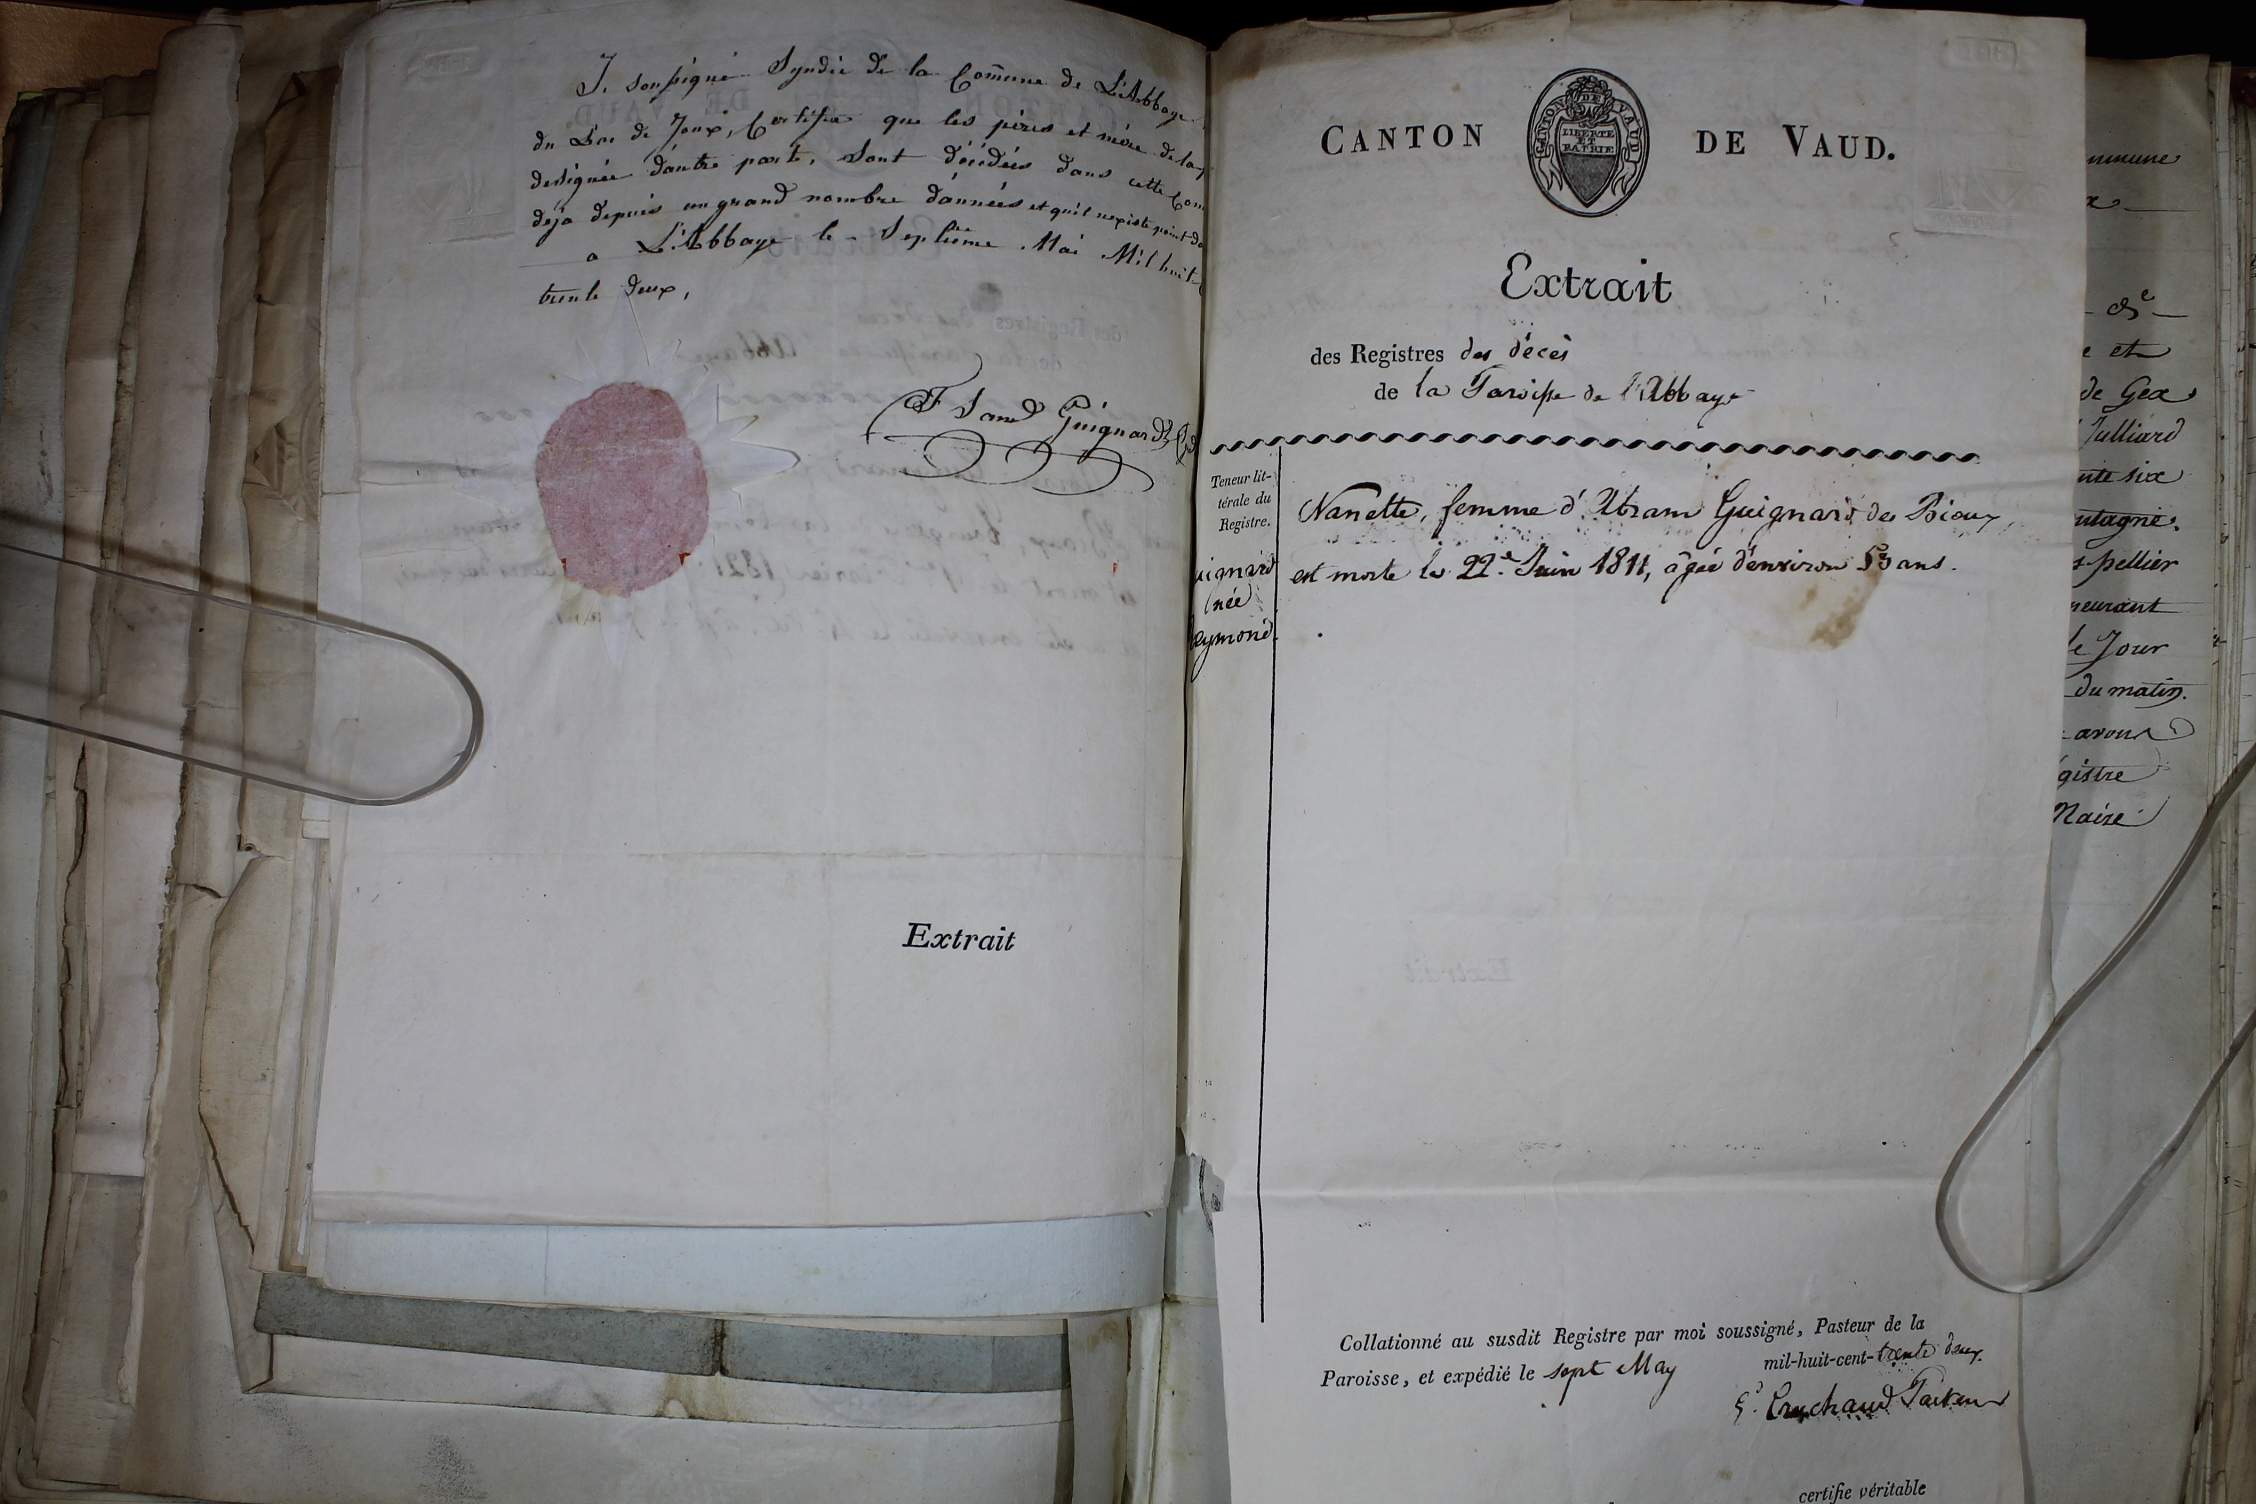 Je soussigné Syndic de la Com̄une de L'Abbaye
du Lac de Joux, Certifie que les pères et mère de la
designée d'autre part, Sont décédées dans cette Com
deja depuis un grand nombre d'années et qu'il n'existe point
a L'Abbaye le Septième Mai Mil huit
trente deux,
Saml Guignard
Extrait
CANTON DE VAUD.
CANTON DE VAUD
LIBERTE
ET
PATRIE
Extrait
des Registres des décès
de la Paroisse de l'Abbaye
Teneur lit-
térale du
Registre.
uignard
(née
eymond.
Nanette, femme d'Abram Guignard des Bioux,
est morte le 22e Juin 1811, âgée d'environ 53 ans.
Collationné au susdit Registre par moi soussigné, Pasteur de la
Paroisse, et expédié le sept May mil-huit-cent-trente deux.
Cruchaud Pasteur
certifie véritable
mmune
x
&c
e et
de Gex
Julliard
nte six
ntagne.
s pellier
meurant
le Jour
du matin.
avons
gistre
Maire